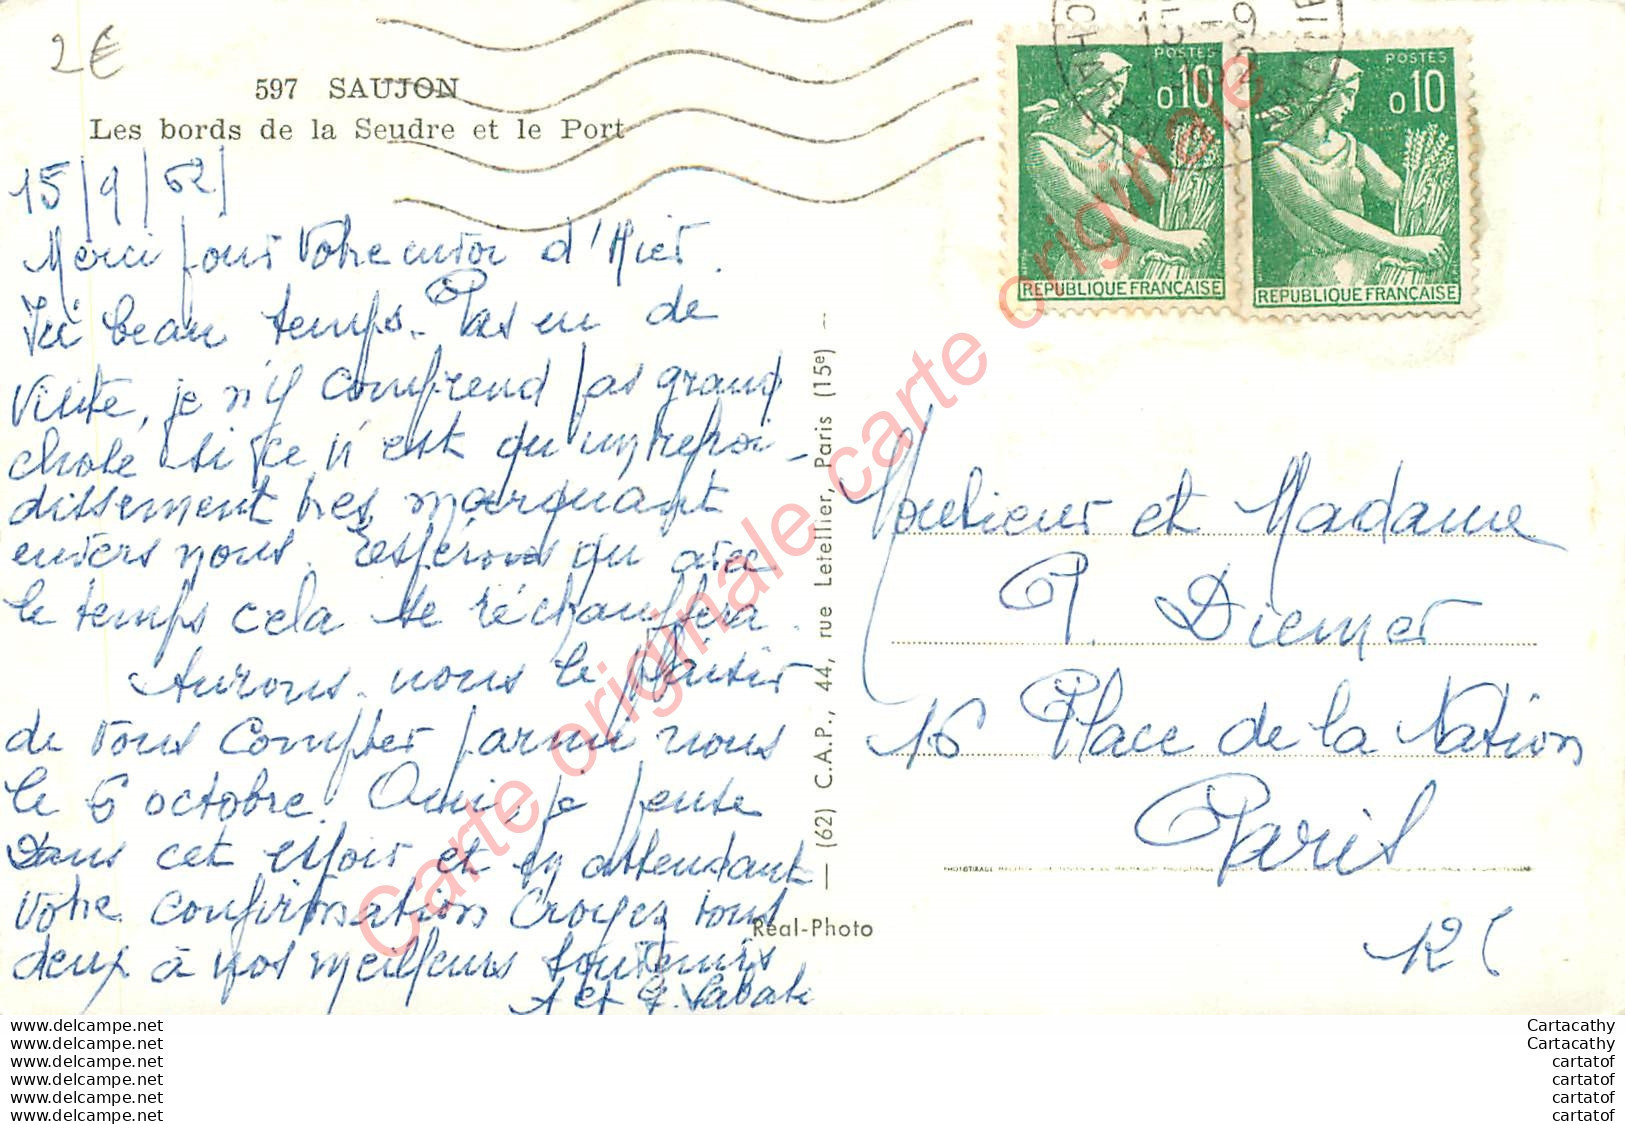 2€
597 SAUJON
Les bords de la Seudre et le Port
15/9/62/
Merci pour votre envoi d'Hier.
Ici beau temps. Pas eu de
visite, je n'y comprend pas grand
chose si ce n'est qu'un refroi-
dissement très marquant
envers nous. Espérons qu'avec
le temps cela se réchauffera.
Aurons-nous le plaisir
de vous compter parmi nous
le 6 octobre. Oui, je pense
Dans cet espoir et en attendant
votre confirmation Croyez tous
deux à nos meilleurs souvenirs
A et G. Labat
(62) C.A.P., 44, rue Letellier, Paris (15e)
Real-Photo
POSTES
0,10
REPUBLIQUE FRANÇAISE
POSTES
0,10
REPUBLIQUE FRANÇAISE
Monsieur et Madame
P. Diemer
16 Place de la Nation
Paris
12e
Carte originale carte originale
www.delcampe.net
www.delcampe.net
www.delcampe.net
www.delcampe.net
www.delcampe.net
www.delcampe.net
Cartacathy
Cartacathy
cartatof
cartatof
cartatof
cartatof